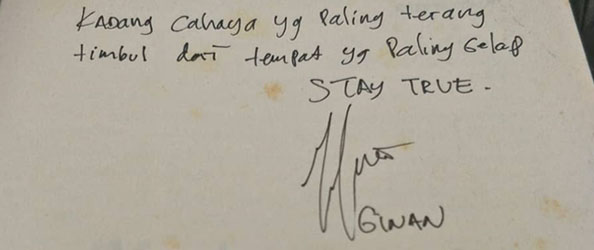 Kadang Cahaya yg Paling terang
timbul dari tempat yg Paling Gelap
STAY TRUE.
GWAN